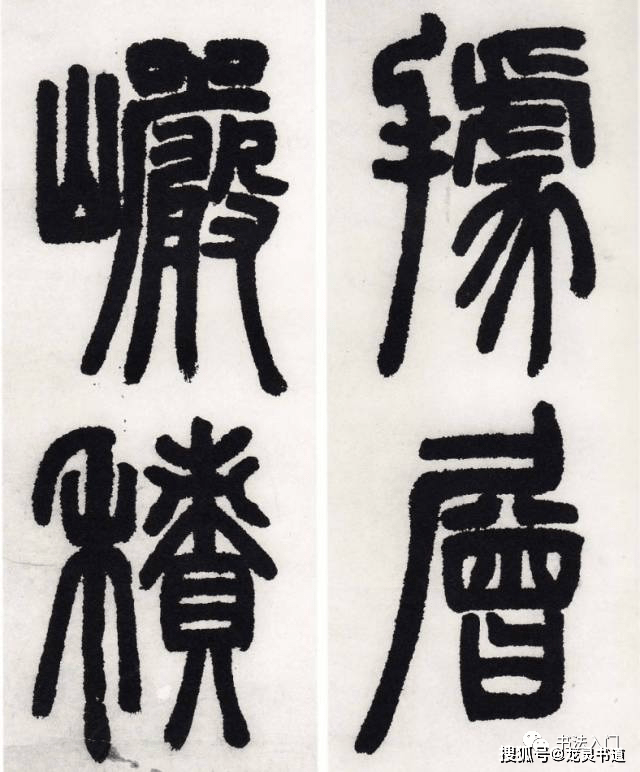 據層
巖積
书法入门
搜狐号@龙灵书道